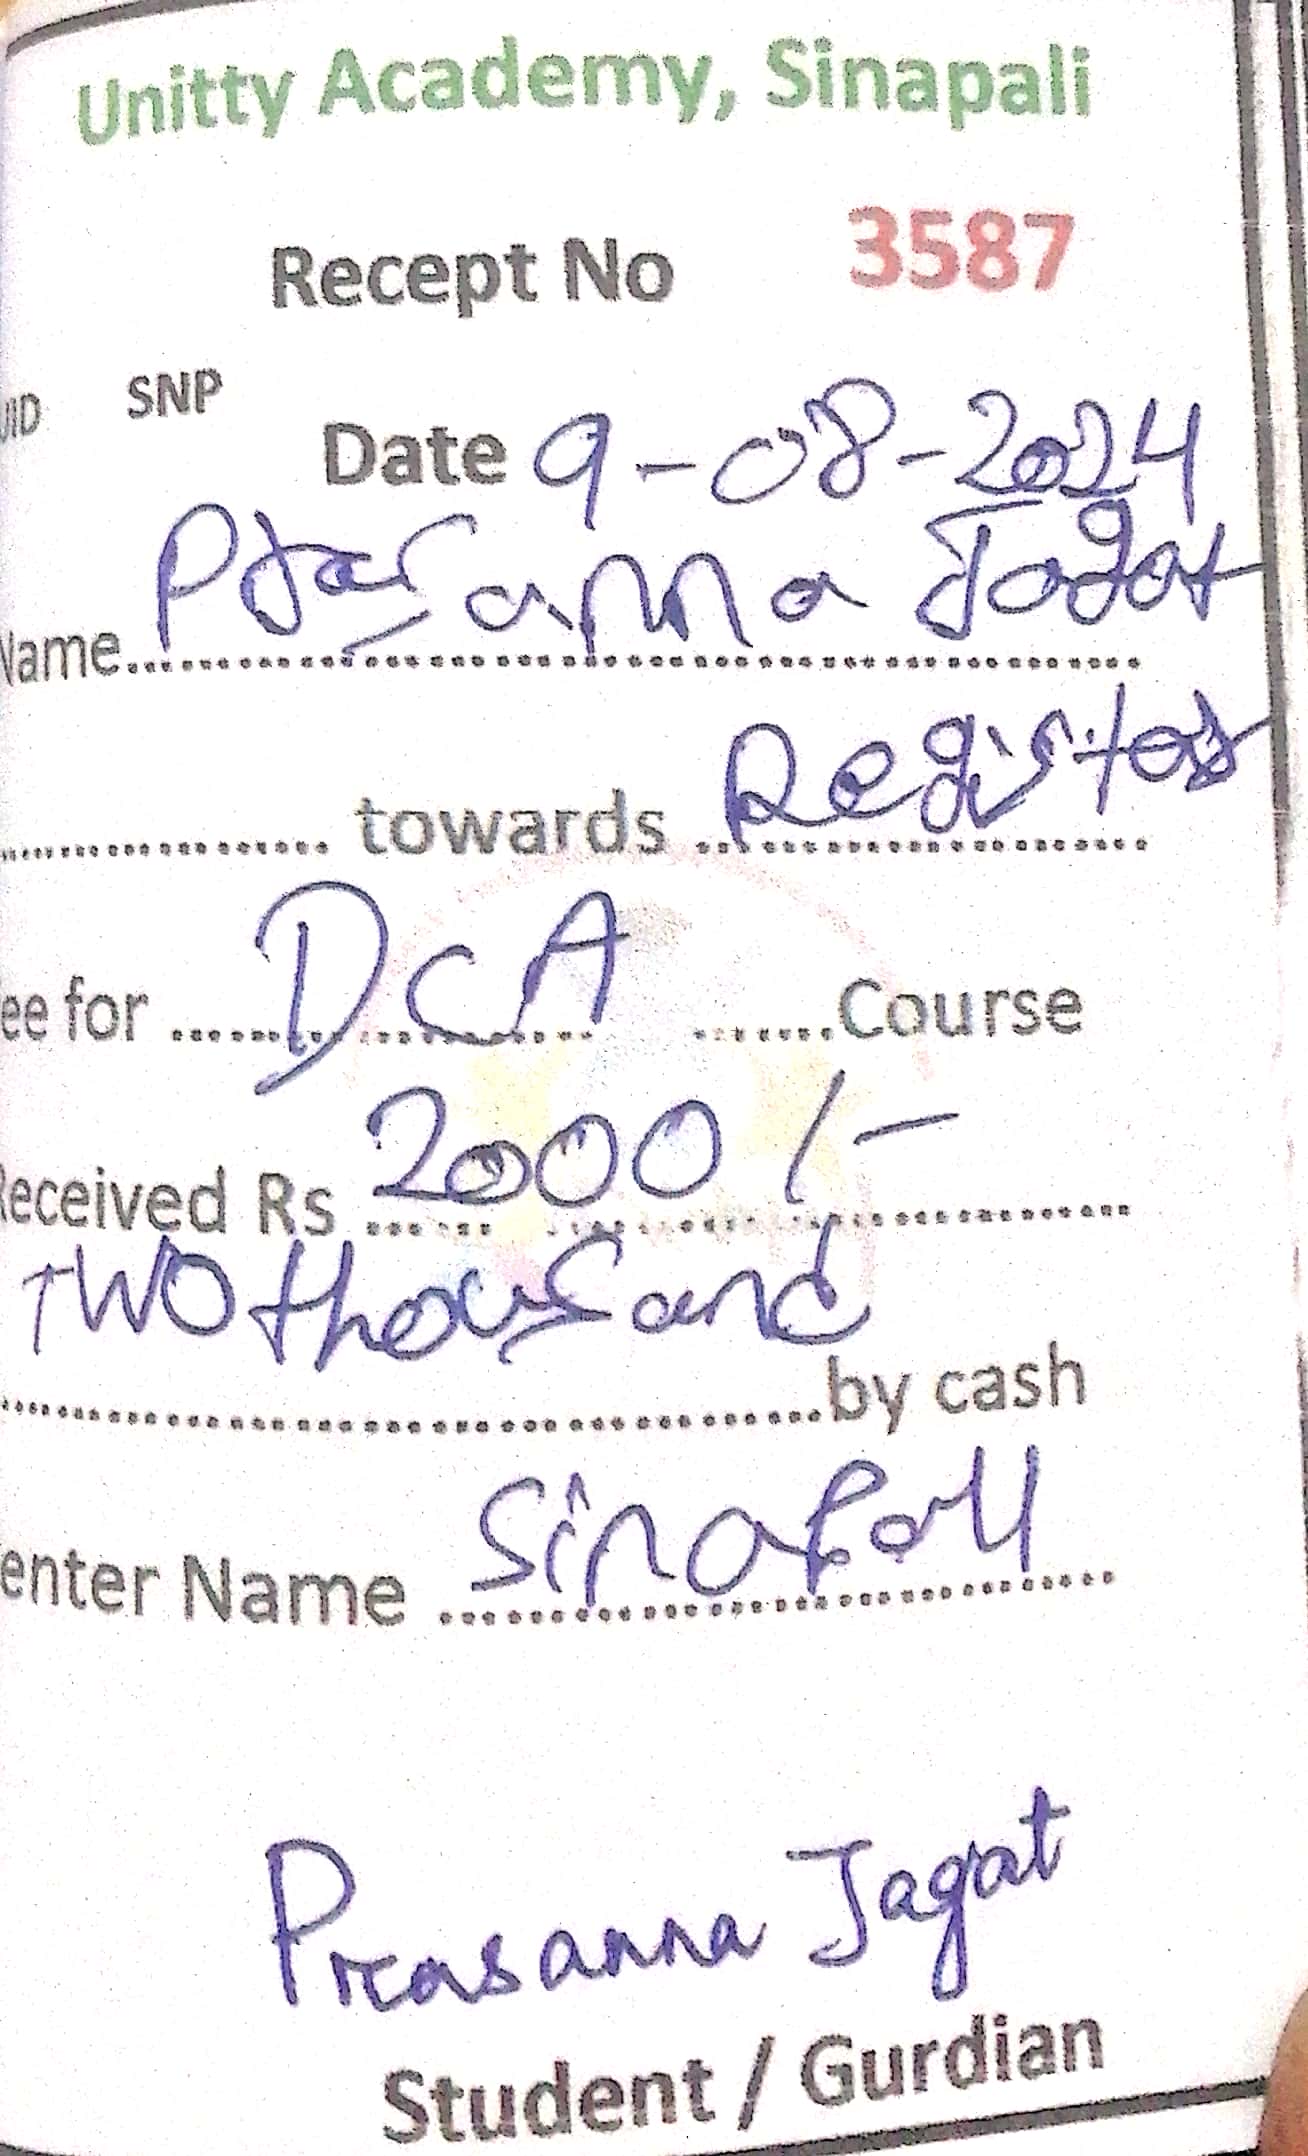 Unitty Academy, Sinapali
Recept No 3587
UID SNP
Date 9-08-2024
Name Prasanna Jagat
towards Register
ee for DCA Course
Received Rs 2000/-
Two thousand
by cash
enter Name Sinapali
Prasanna Jagat
Student / Gurdian